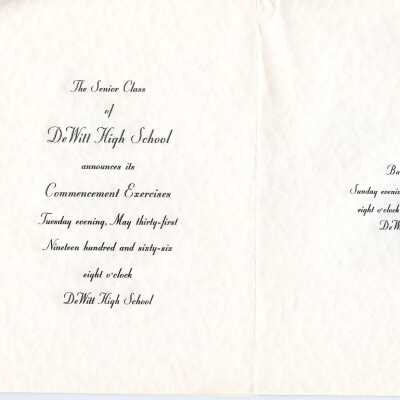 The Senior Class
of
DeWitt High School
announces its
Commencement Exercises
Tuesday evening, May thirty-first
Nineteen hundred and sixty-six
eight o'clock
DeWitt High School
Sunday
eight o'clock